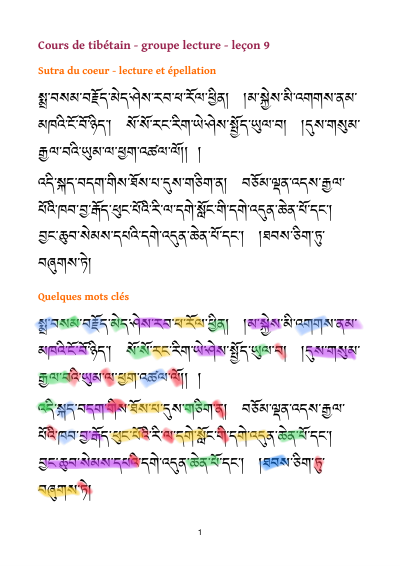 Cours de tibétain - groupe lecture - leçon 9
Sutra du coeur - lecture et épellation
སྨྲ་བསམ་བརྗོད་མེད་ཤེས་རབ་ཕ་རོལ་ཕྱིན། །མ་སྐྱེས་མི་འགགས་ནམ་
མཁའི་ངོ་བོ་ཉིད། སོ་སོ་རང་རིག་ཡེ་ཤེས་སྤྱོད་ཡུལ་བ། །དུས་གསུམ་
རྒྱལ་བའི་ཡུམ་ལ་ཕྱག་འཚལ་ལོ།། །
འདི་སྐད་བདག་གིས་ཐོས་པ་དུས་གཅིག་ན། བཅོམ་ལྡན་འདས་རྒྱལ་
པོའི་ཁབ་བྱ་རྒོད་ཕུང་པོའི་རི་ལ་དགེ་སློང་གི་དགེ་འདུན་ཆེན་པོ་དང་།
བྱང་ཆུབ་སེམས་དཔའི་དགེ་འདུན་ཆེན་པོ་དང་། །ཐབས་ཅིག་ཏུ་
བཞུགས་ཏེ།
Quelques mots clés
སྨྲ་བསམ་བརྗོད་མེད་ཤེས་རབ་ཕ་རོལ་ཕྱིན། །མ་སྐྱེས་མི་འགགས་ནམ་
མཁའི་ངོ་བོ་ཉིད། སོ་སོ་རང་རིག་ཡེ་ཤེས་སྤྱོད་ཡུལ་བ། །དུས་གསུམ་
རྒྱལ་བའི་ཡུམ་ལ་ཕྱག་འཚལ་ལོ།། །
འདི་སྐད་བདག་གིས་ཐོས་པ་དུས་གཅིག་ན། བཅོམ་ལྡན་འདས་རྒྱལ་
པོའི་ཁབ་བྱ་རྒོད་ཕུང་པོའི་རི་ལ་དགེ་སློང་གི་དགེ་འདུན་ཆེན་པོ་དང་།
བྱང་ཆུབ་སེམས་དཔའི་དགེ་འདུན་ཆེན་པོ་དང་། །ཐབས་ཅིག་ཏུ་
བཞུགས་ཏེ།
1